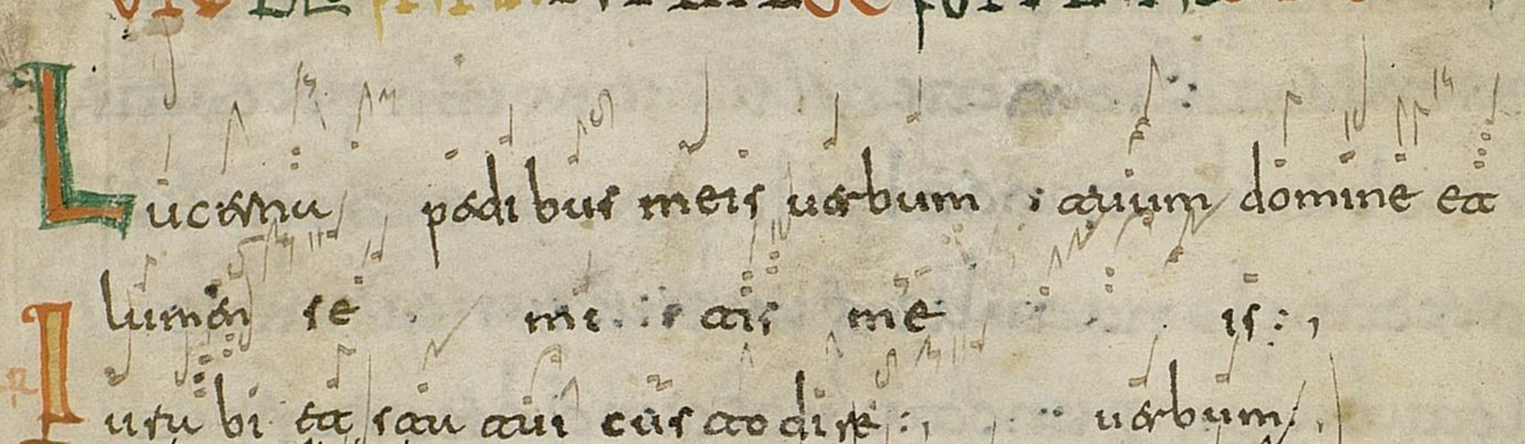 Lucerna pedibus meis uerbum tuum domine et
lumen se mi tis me is
Iura bi et sta tui cus todire uerbum